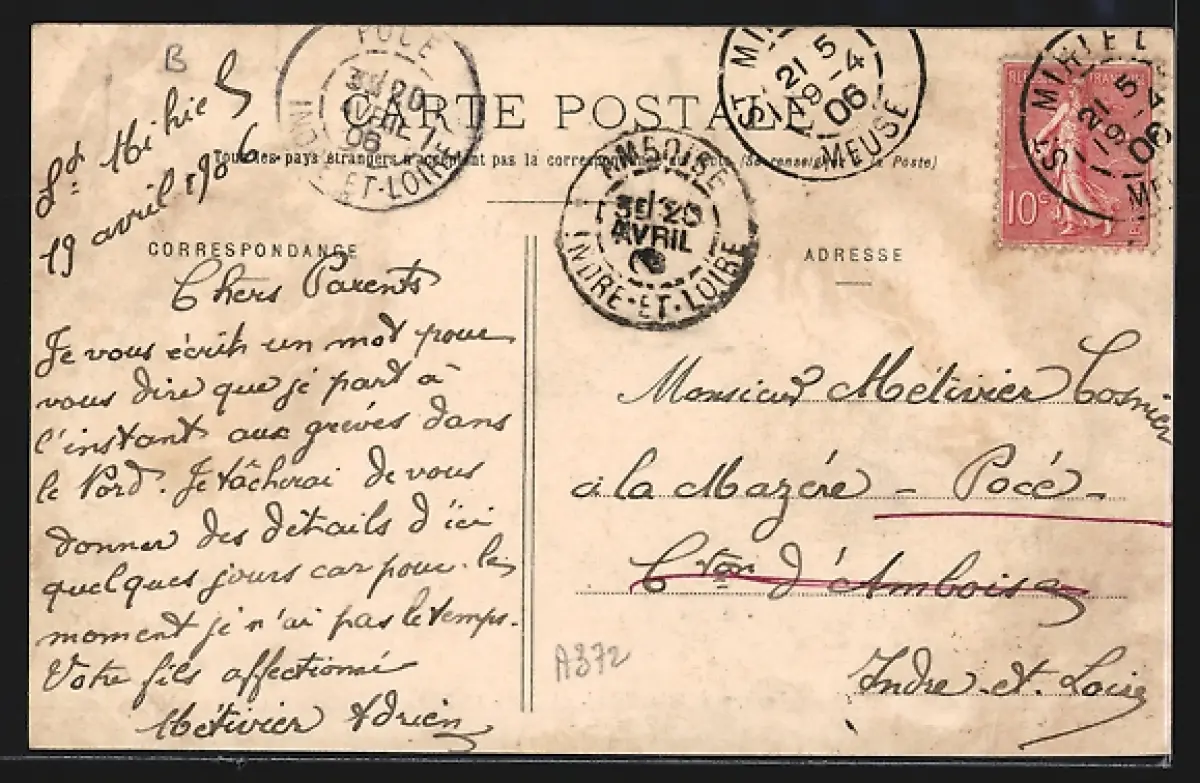 B
CARTE POSTALE
Tous les pays étrangers n'acceptent pas la correspondance au recto (Se renseigner à la Poste)
St Mihiel
19 avril 1906
CORRESPONDANCE
Chers Parents
Je vous écrit un mot pour
vous dire que je part à
l'instant aux grèves dans
le Nord. Je tâcherai de vous
donner des détails d'ici
quelques jours car pour le
moment je n'ai pas le temps.
Votre fils affectionné
Métivier Adrien
ADRESSE
Monsieur Métivier Cosnier
à la Mazére - Pocé -
Cton d'Amboise
Indre-et-Loire
A372
POCÉ
20
AVRIL
06
INDRE-ET-LOIRE
AMBOISE
3E/20
AVRIL
06
INDRE-ET-LOIRE
ST MIHIEL
21 5
19-4
06
MEUSE
ST MIHIEL
21 5
19-4
06
MEUSE
REPUBLIQUE FRANÇAISE
10c